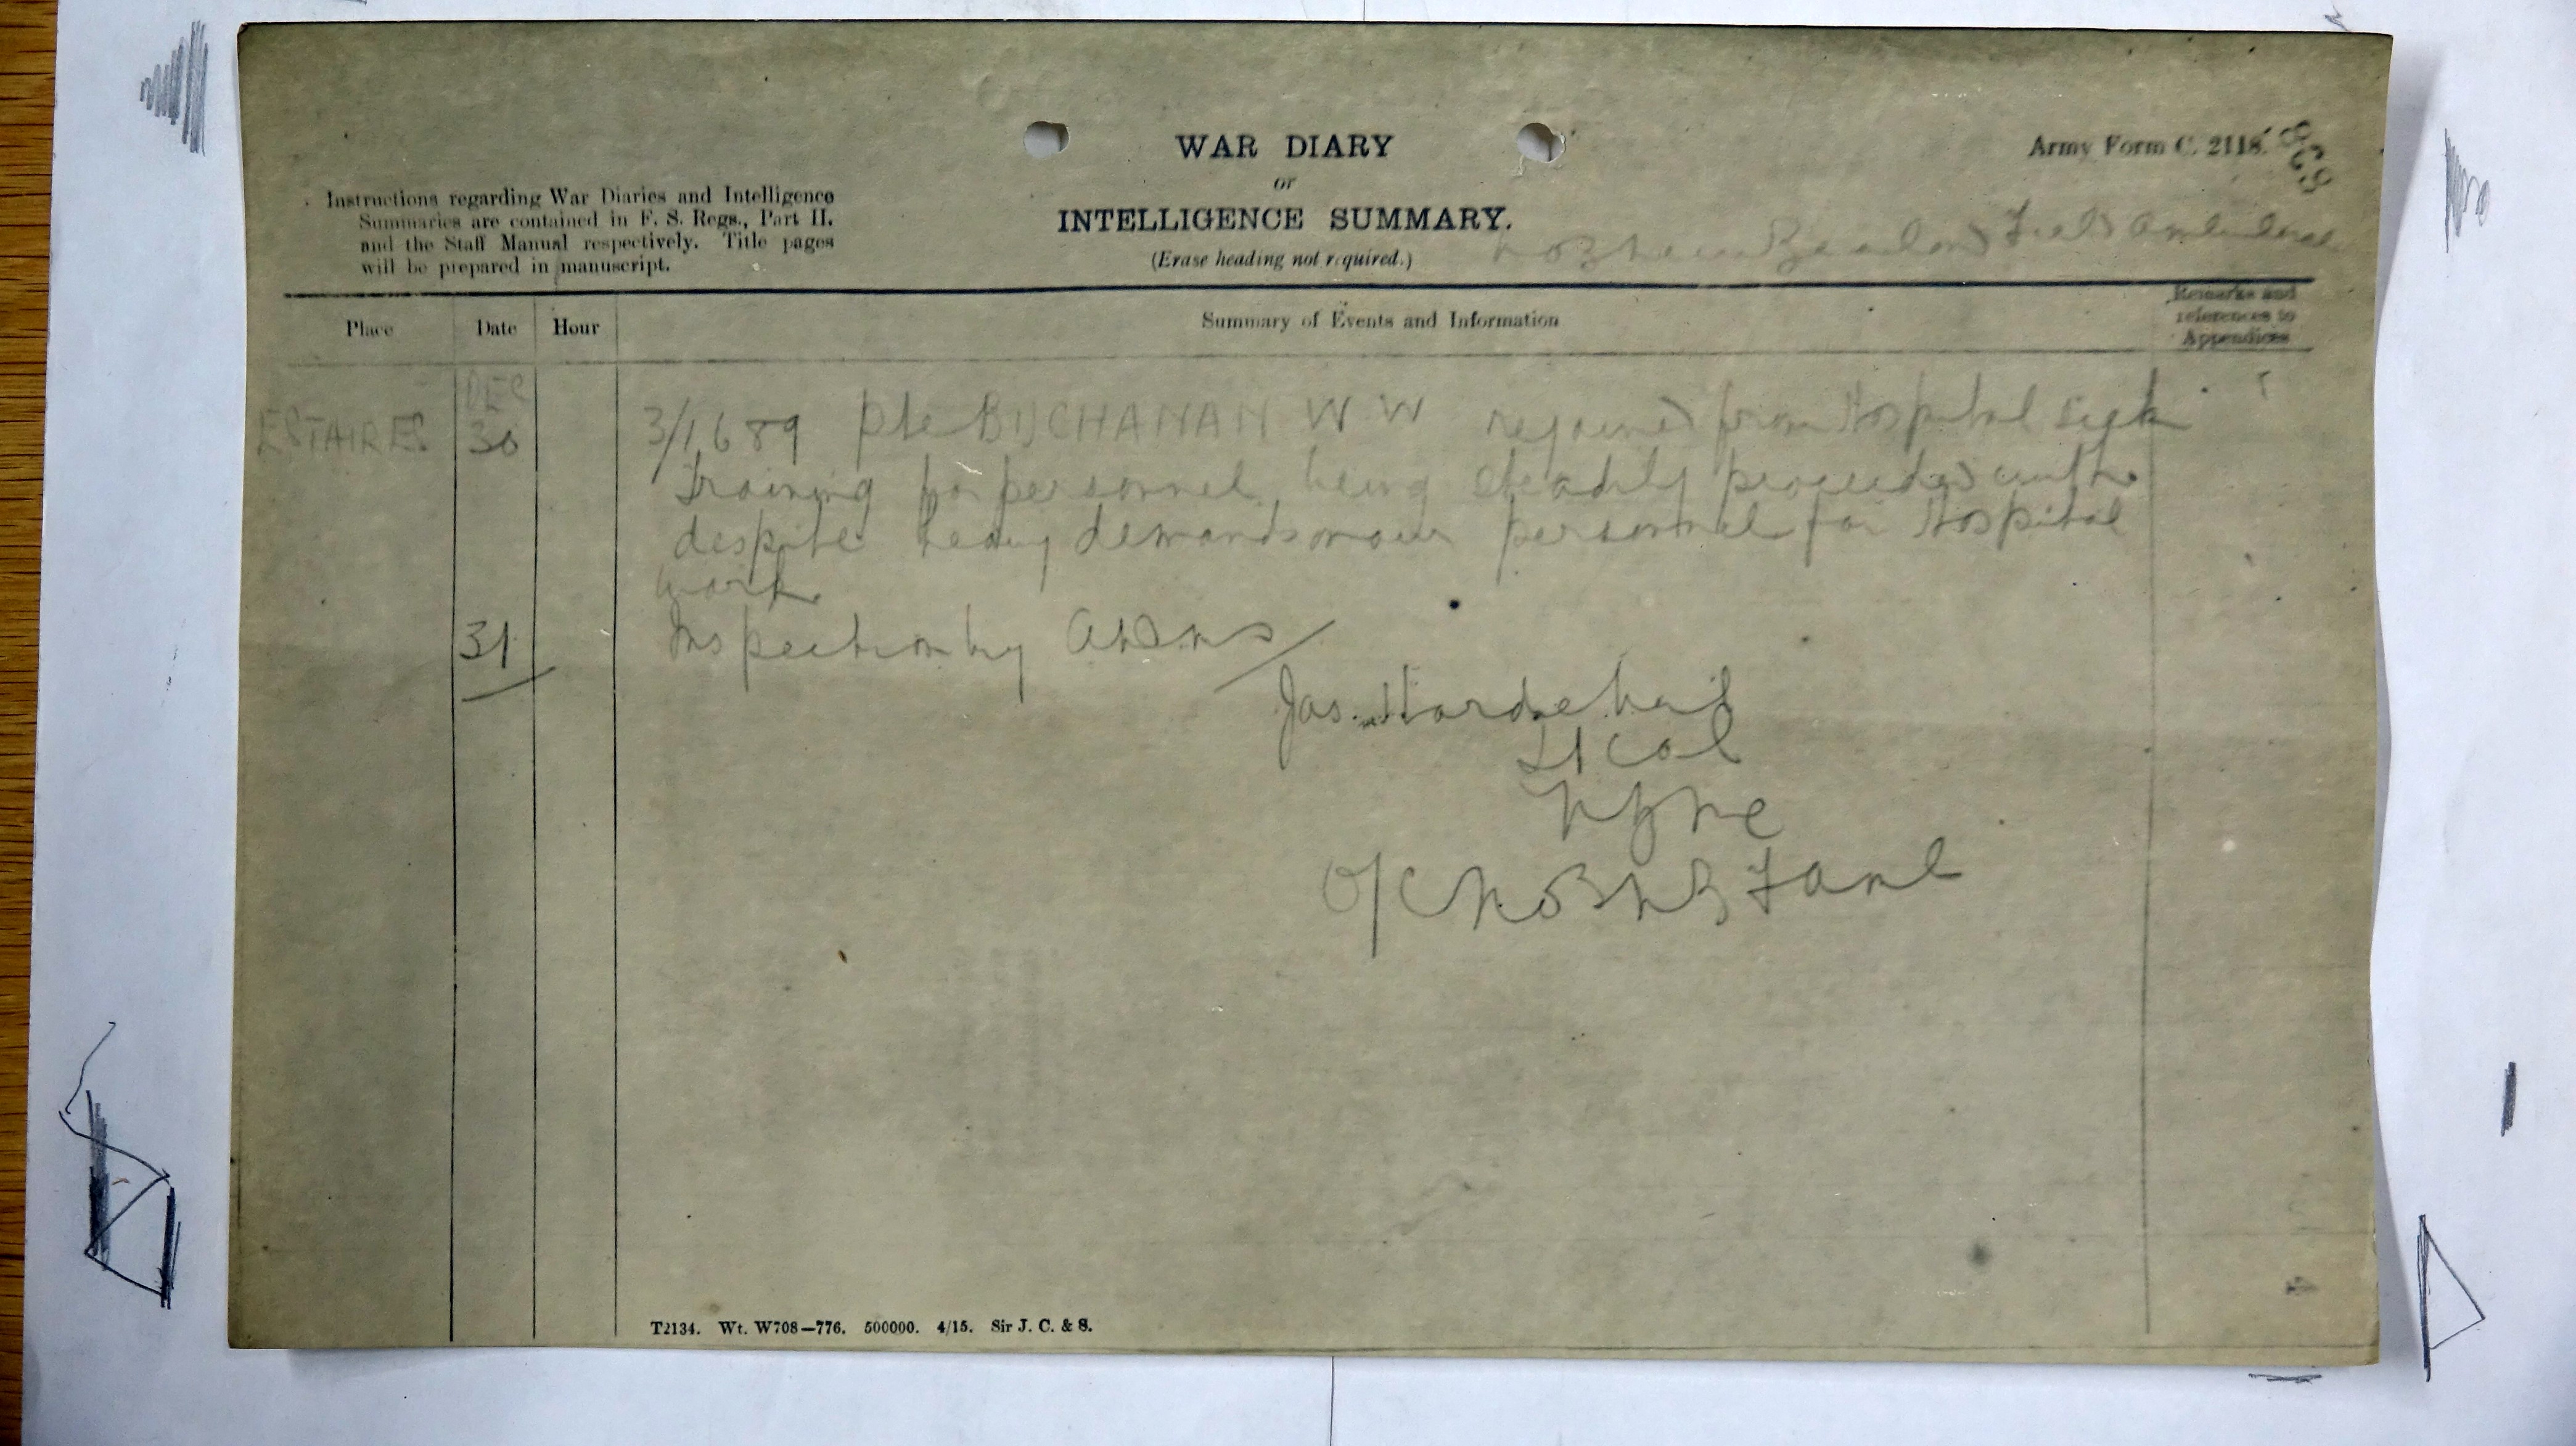 WAR DIARY
or
INTELLIGENCE SUMMARY.
(Erase heading not required.)
Army Form C. 2118.
Instructions regarding War Diaries and Intelligence
Summaries are contained in F. S. Regs., Part II.
and the Staff Manual respectively. Title pages
will be prepared in manuscript.
No 3 New Zealand Field Ambulance
Place Date Hour Summary of Events and Information
Remarks and
references to
Appendices
DEC
ESTAIRES 30 3/1689 Pte BUCHANAN W W rejoined from Hospital sick
Training for personnel being steadily proceeded with
despite heavy demands on our personnel for Hospital
work
31 Inspection by ADMS
Jas. Hardie Neil
Lt Col
NZMC
O/C No 3 NZ F Amb
T2134. Wt. W708—776. 500000. 4/15. Sir J. C. & S.